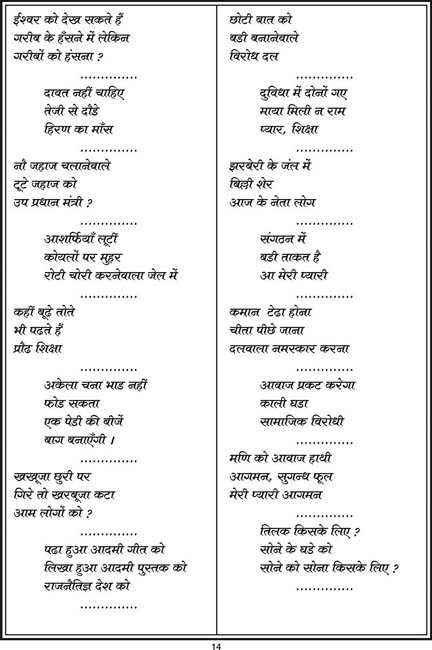 ईश्वर को देख सकते हैं
गरीब के हँसने में लेकिन
गरीबों को हंसना ?
..............
दावत नहीं चाहिए
तेजी से दौडे
हिरण का माँस
..............
नौ जहाज चलानेवाले
टूटे जहाज को
उप प्रधान मंत्री ?
..............
आशर्फियाँ लूटीं
कोयलों पर मुहर
रोटी चोरी करनेवाला जेल में
..............
कहीं बूढे तोते
भी पढते हैं
प्रौढ शिक्षा
..............
अकेला चना भाड नहीं
फोड सकता
एक पेडी की बीजें
बाग बनाएँगी ।
..............
खखूजा छुरी पर
गिरे तो खरबूजा कटा
आम लोगों को ?
..............
पढा हुआ आदमी गीत को
लिखा हुआ आदमी पुस्तक को
राजनैतिज्ञ देश को
..............
छोटी बात को
बडी बनानेवाले
विरोध दल
..............
दुविधा में दोनों गए
माया मिली न राम
प्यार, शिक्षा
..............
झरबेरी के जंल में
बिल्ली शेर
आज के नेता लोग
..............
संगठन में
बडी ताकत है
आ मेरी प्यारी
..............
कमान टेढा होना
चीता पीछे जाना
दलवाला नमस्कार करना
..............
आवाज प्रकट करेगा
काली घडा
सामाजिक विरोधी
..............
मणि को आवाज हाथी
आगमन, सुगन्ध फूल
मेरी प्यारी आगमन
..............
तिलक किसके लिए ?
सोने के घडे को
सोने को सोना किसके लिए ?
..............
14